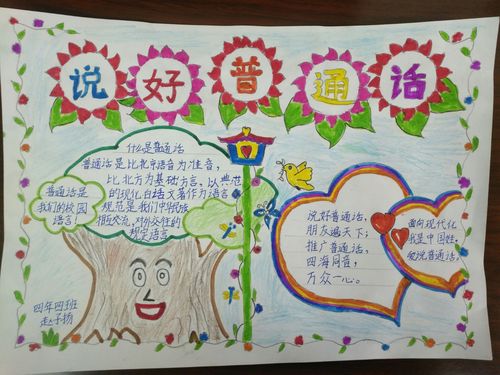 说好普通话
什么是普通话
普通话是比北京语音为准音，
比北方为基础方言。以典范
的现化白话文著作为语言
规范是我们中华民族
相互交流，对外交往的
规定语言
普通话是
我们的校园
语言
说好普通话，
朋友遍天下；
推广普通话，
四海同音，
万众一心。
面向现代化
我是中国娃，
爱说普通话，
四年四班
赵子扬